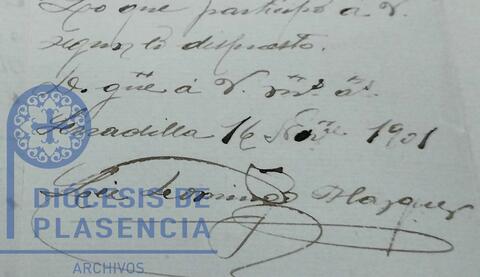 Lo que participo á V.
segun lo dispuesto.
D. gue á V. ms as.
Serradilla 16 Nove 1901
Luis Domingo Blazquez
DIÓCESIS DE
PLASENCIA
ARCHIVOS